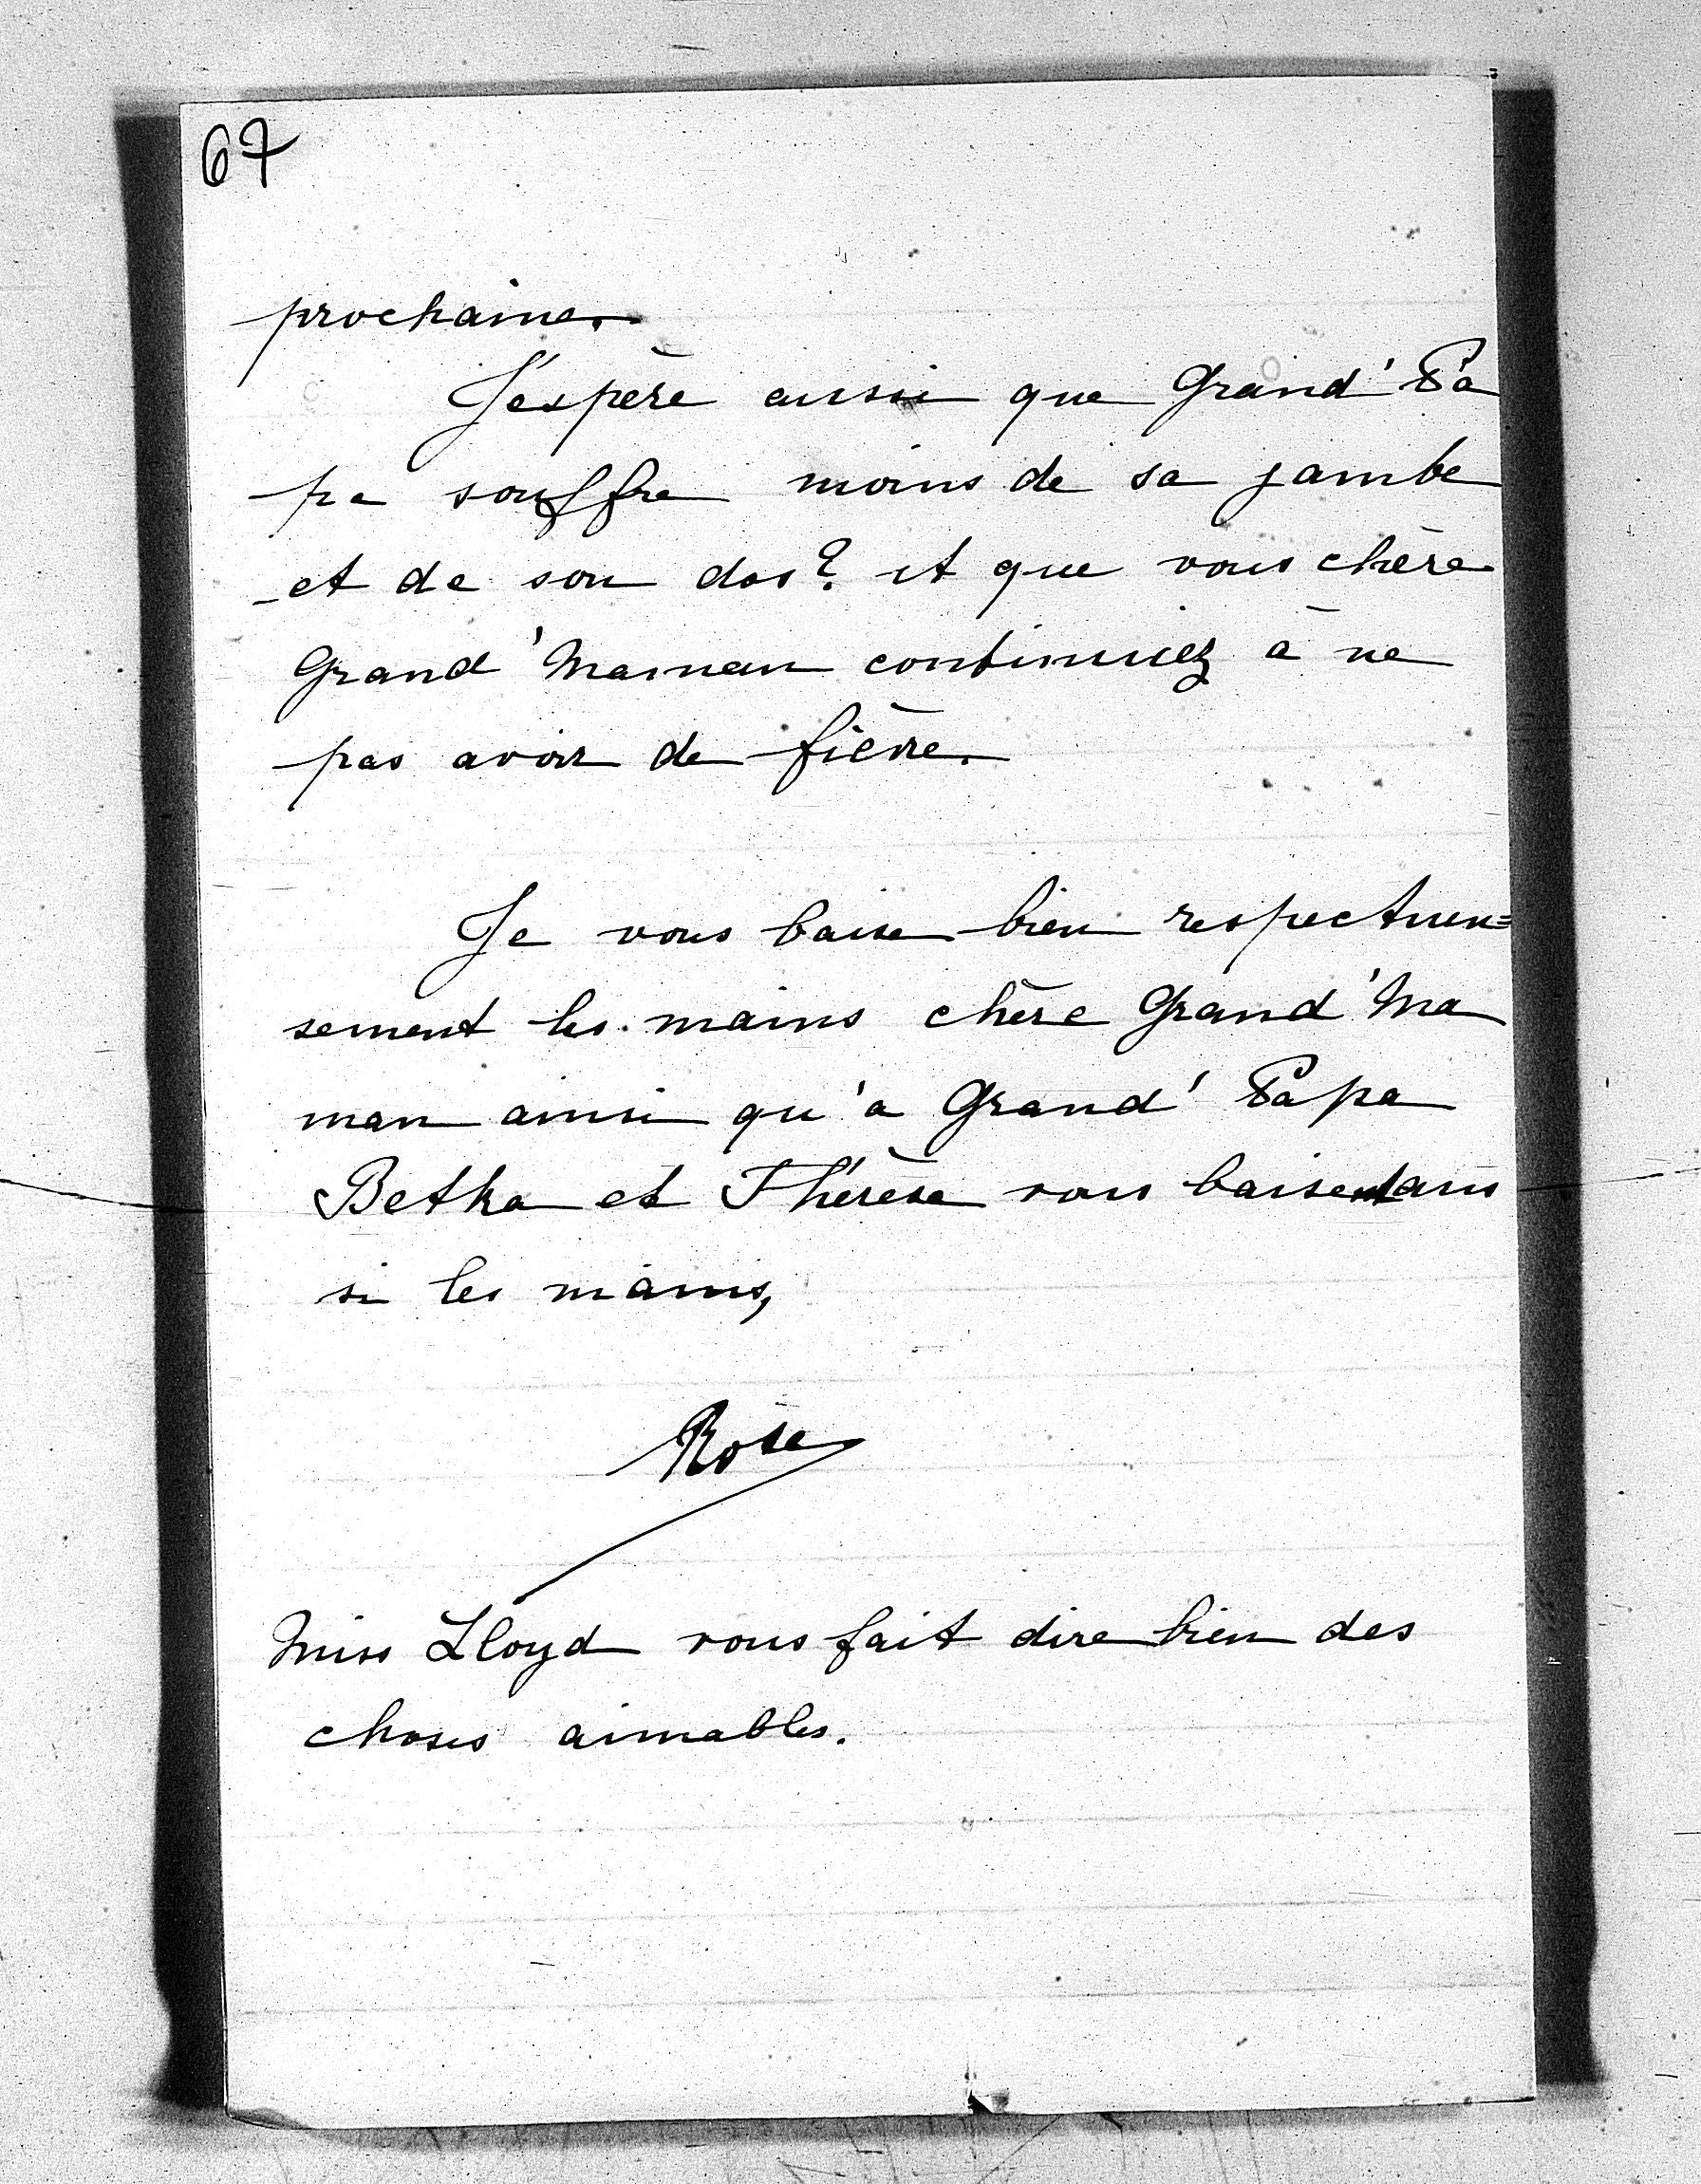 67
prochaine.
J'espère aussi que Grand' Pa
pa souffre moins de sa jambe
et de son dos? et que vous chère
Grand'Maman continuiez à ne
pas avoir de fièvre.
Je vous baise bien respectueu=
sement les mains chère Grand'Ma
man ainsi qu'à Grand' Papa
Betka et Thérèse vous baisent aus
si les mains,
Rose
Miss Lloyd vous fait dire bien des
choses aimables.